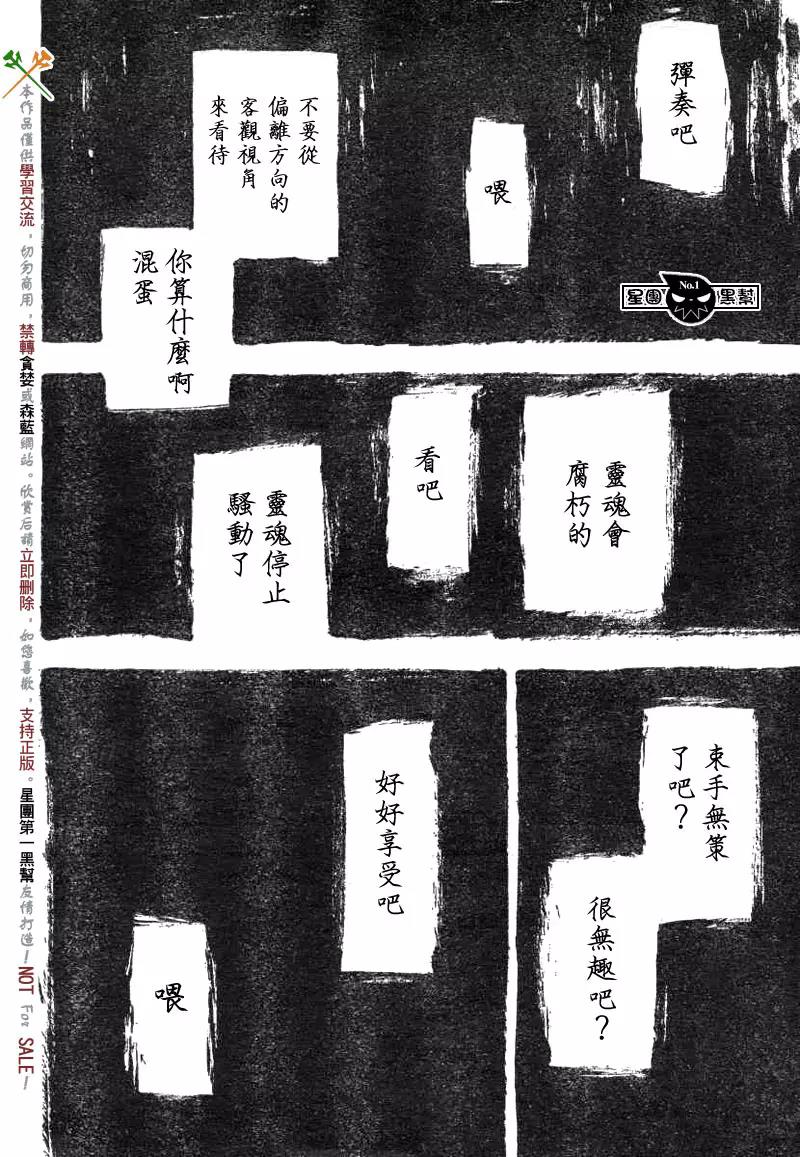 彈奏吧
喂
不要從
偏離方向的
客觀視角
來看待
你算什麼啊
混蛋
星團 No.1 黑幫
靈魂會
腐朽的
看吧
靈魂停止
騷動了
束手無策
了吧？
很無趣吧？
好好享受吧
喂
本作品僅供學習交流，切勿商用，禁轉貪婪或森藍網站。欣賞后請立即刪除，如您喜歡，支持正版。星團第一黑幫友情打造/NOT For SALE/